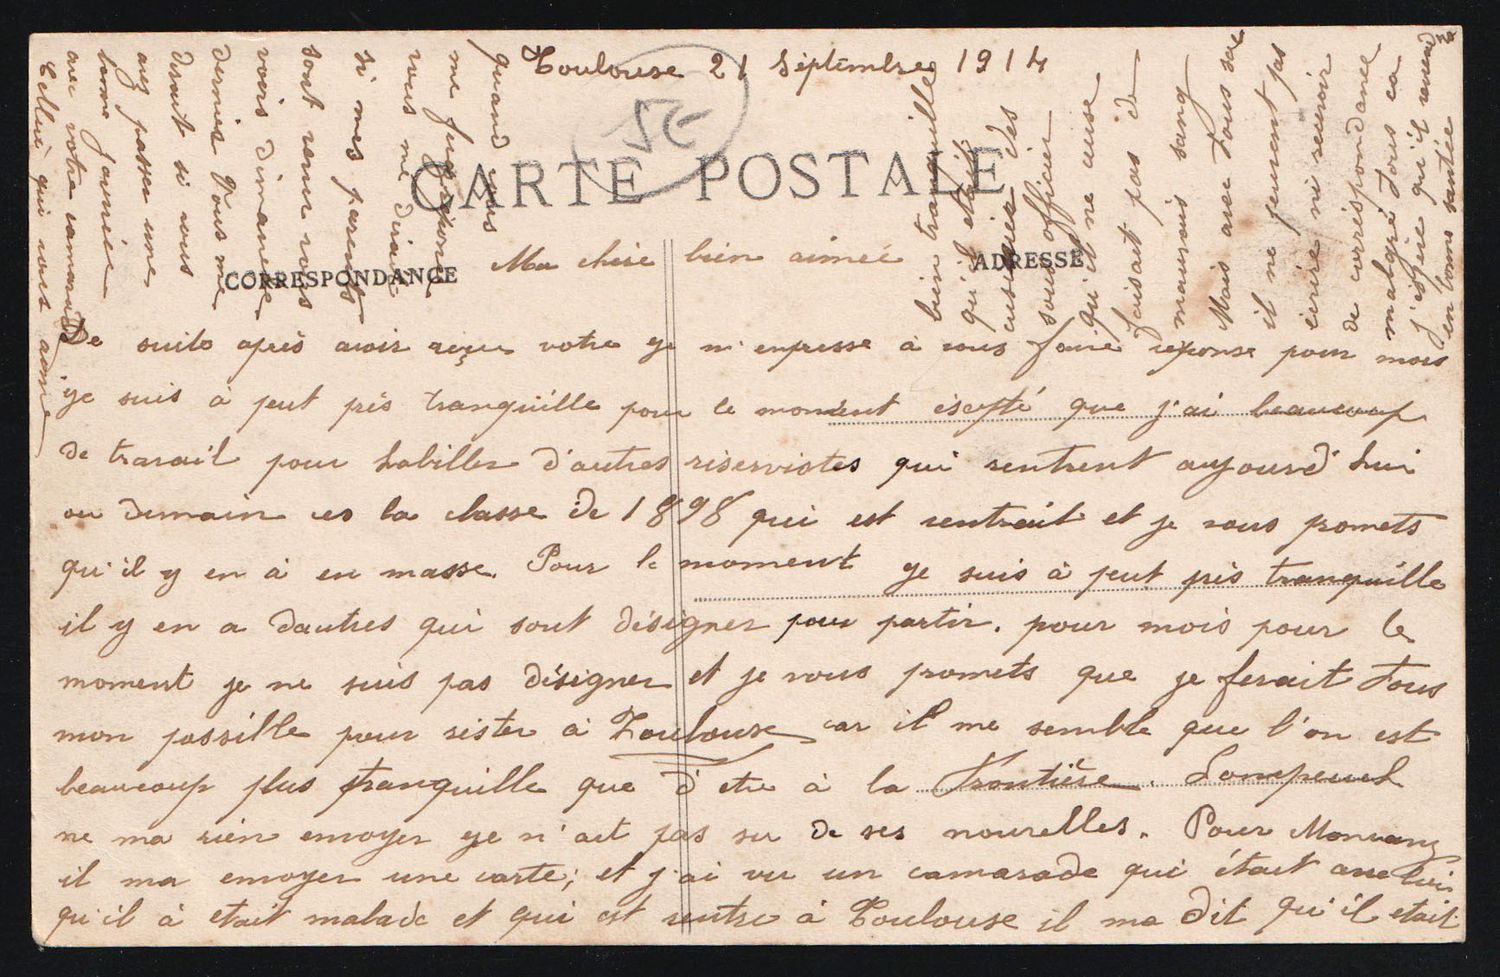 Toulouse 21 Septembre 1914
5€
CARTE POSTALE
CORRESPONDANCE
ADRESSE
Ma chère bien aimée
De suite après avoir reçue votre je m'empresse à vous faire reponse pour mois
je suis à peut près tranquille pour le moment esepté que j'ai beaucoup
de travail pour habiller d'autres riservistes qui rentrent aujourd'hui
ou demain ces la classe de 1898 qui est rentrait et je vous promets
qu'il y en à en masse. Pour le moment je suis à peut près tranquille
il y en a dautres qui sont désigner pour partir. pour mois pour le
moment je ne suis pas désigner et je vous promets que je ferait tous
mon possible pour rister à Toulouse car il me semble que l'on est
beaucoup plus tranquille que d'etre à la frontière. Lompeuch
ne ma rien envoyer je n'ait pas su de ses nouvelles. Pour Monvanz
il ma envoyer une carte; et j'ai vu un camarade qui était avec lui
qu'il à etait malade et qui est rentre à Toulouse il ma dit qu'il etait
bien tranquille
qu'il etait
cuisinier des
sous officier
qu'il ne cuse
faisait pas de
mauvais sang
Mais avec tous sa
il ne peuvent pas
ecrire ni recevoir
de correspondance
malgré tous ca
j'espère qu'il reviendra
en bonne santée
quand vous
me fairé reponce
vous me direz
si mes parents
sont venu vous
voir dimanche
dernier Vous me
direz si vous
avez passer une
bonne journée
avec votre camarade
Celui qui vous aime